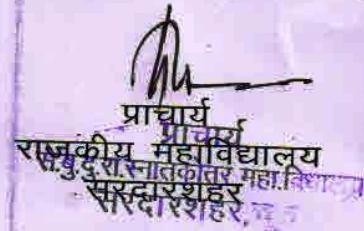 प्राचार्य
प्राचार्य
राजकीय महाविद्यालय
स्नातकोत्तर महा.विद्यालय
सरदारशहर
सरदारशहर